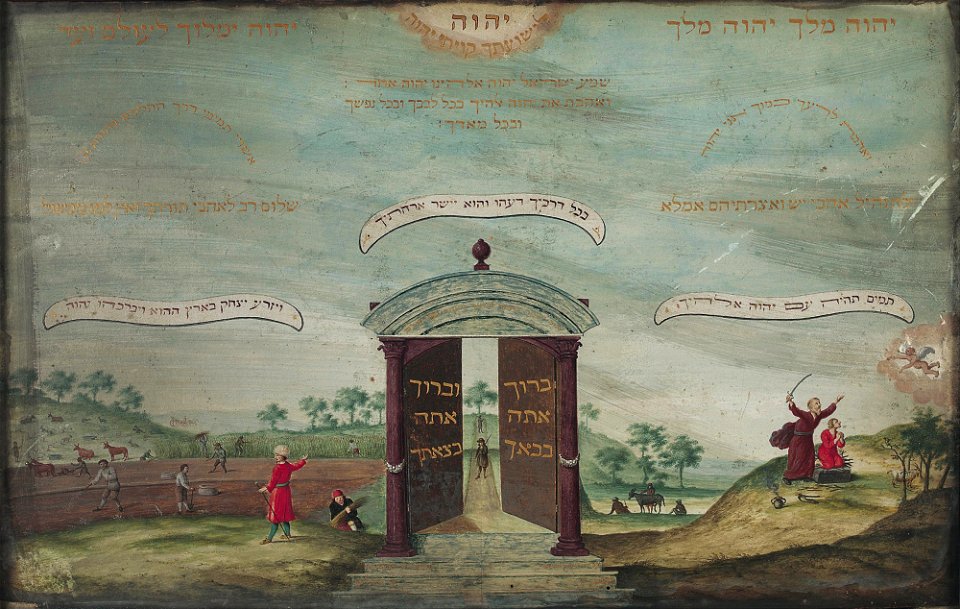 יהוה מלך יהוה מלך
יהוה
לישועתך קויתי יהוה
יהוה ימלוך לעולם ועד
שמע ישראל יהוה אלהינו יהוה אחד:
ואהבת את יהוה אלהיך בכל לבבך ובכל נפשך
ובכל מאדך:
ואהבת לרעך כמוך אני יהוה
אשרי תמימי דרך
אהבי יש ואצרתיהם אמלא
שלום רב לאהבי תורתך ואין למו מכשול
בכל דרכיך דעהו והוא יישר ארחתיך
תמים תהיה עם יהוה אלהיך
ויזרע יצחק בארץ ההוא ויברכהו יהוה
ברוך
אתה
בבאך
וברוך
אתה
בצאתך